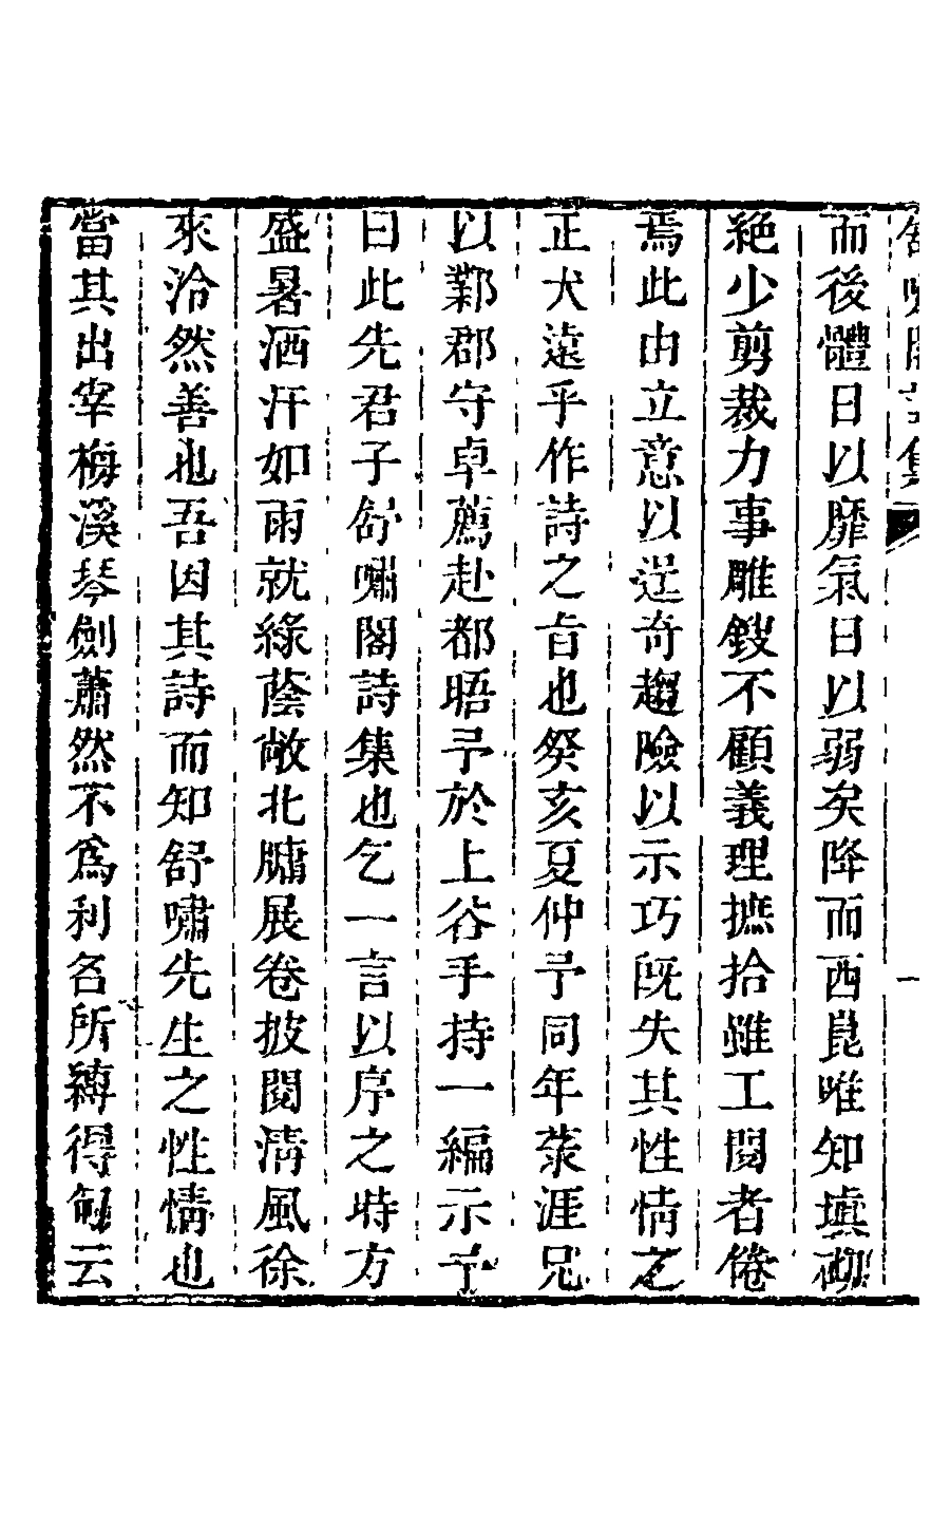 而後體日以靡氣日以弱矣降而西崑唯知塡砌
絕少剪裁力事雕鎪不顧義理摭拾雖工閱者倦
焉此由立意以逞奇趨險以示巧旣失其性情之
正大遠乎作詩之旨也癸亥夏仲予同年蓘涯兄
以鄴郡守卓薦赴都晤予於上谷手持一編示予
曰此先君子舒嘯閣詩集也乞一言以序之時方
盛暑洒汗如雨就綠蔭敞北牗展卷披閱淸風徐
來泠然善也吾因其詩而知舒嘯先生之性情也
當其出宰梅溪琴劍蕭然不爲利名所縛得句云